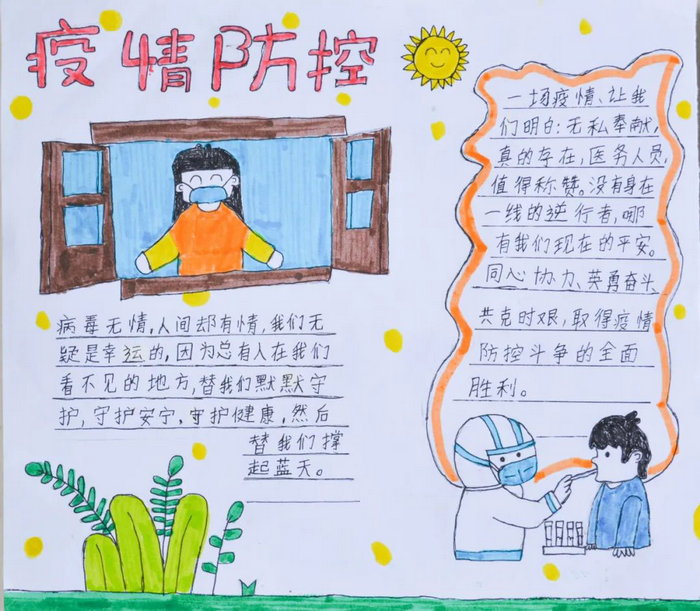 疫情防控
病毒无情,人间却有情,我们无
疑是幸运的,因为总有人在我们
看不见的地方,替我们默默守
护,守护安宁,守护健康,然后
替我们撑
起蓝天。
一场疫情、让我
们明白:无私奉献,
真的存在,医务人员,
值得称赞。没有身在
一线的逆行者,哪
有我们现在的平安。
同心协力、英勇奋斗、
共克时艰,取得疫情
防控斗争的全面
胜利。